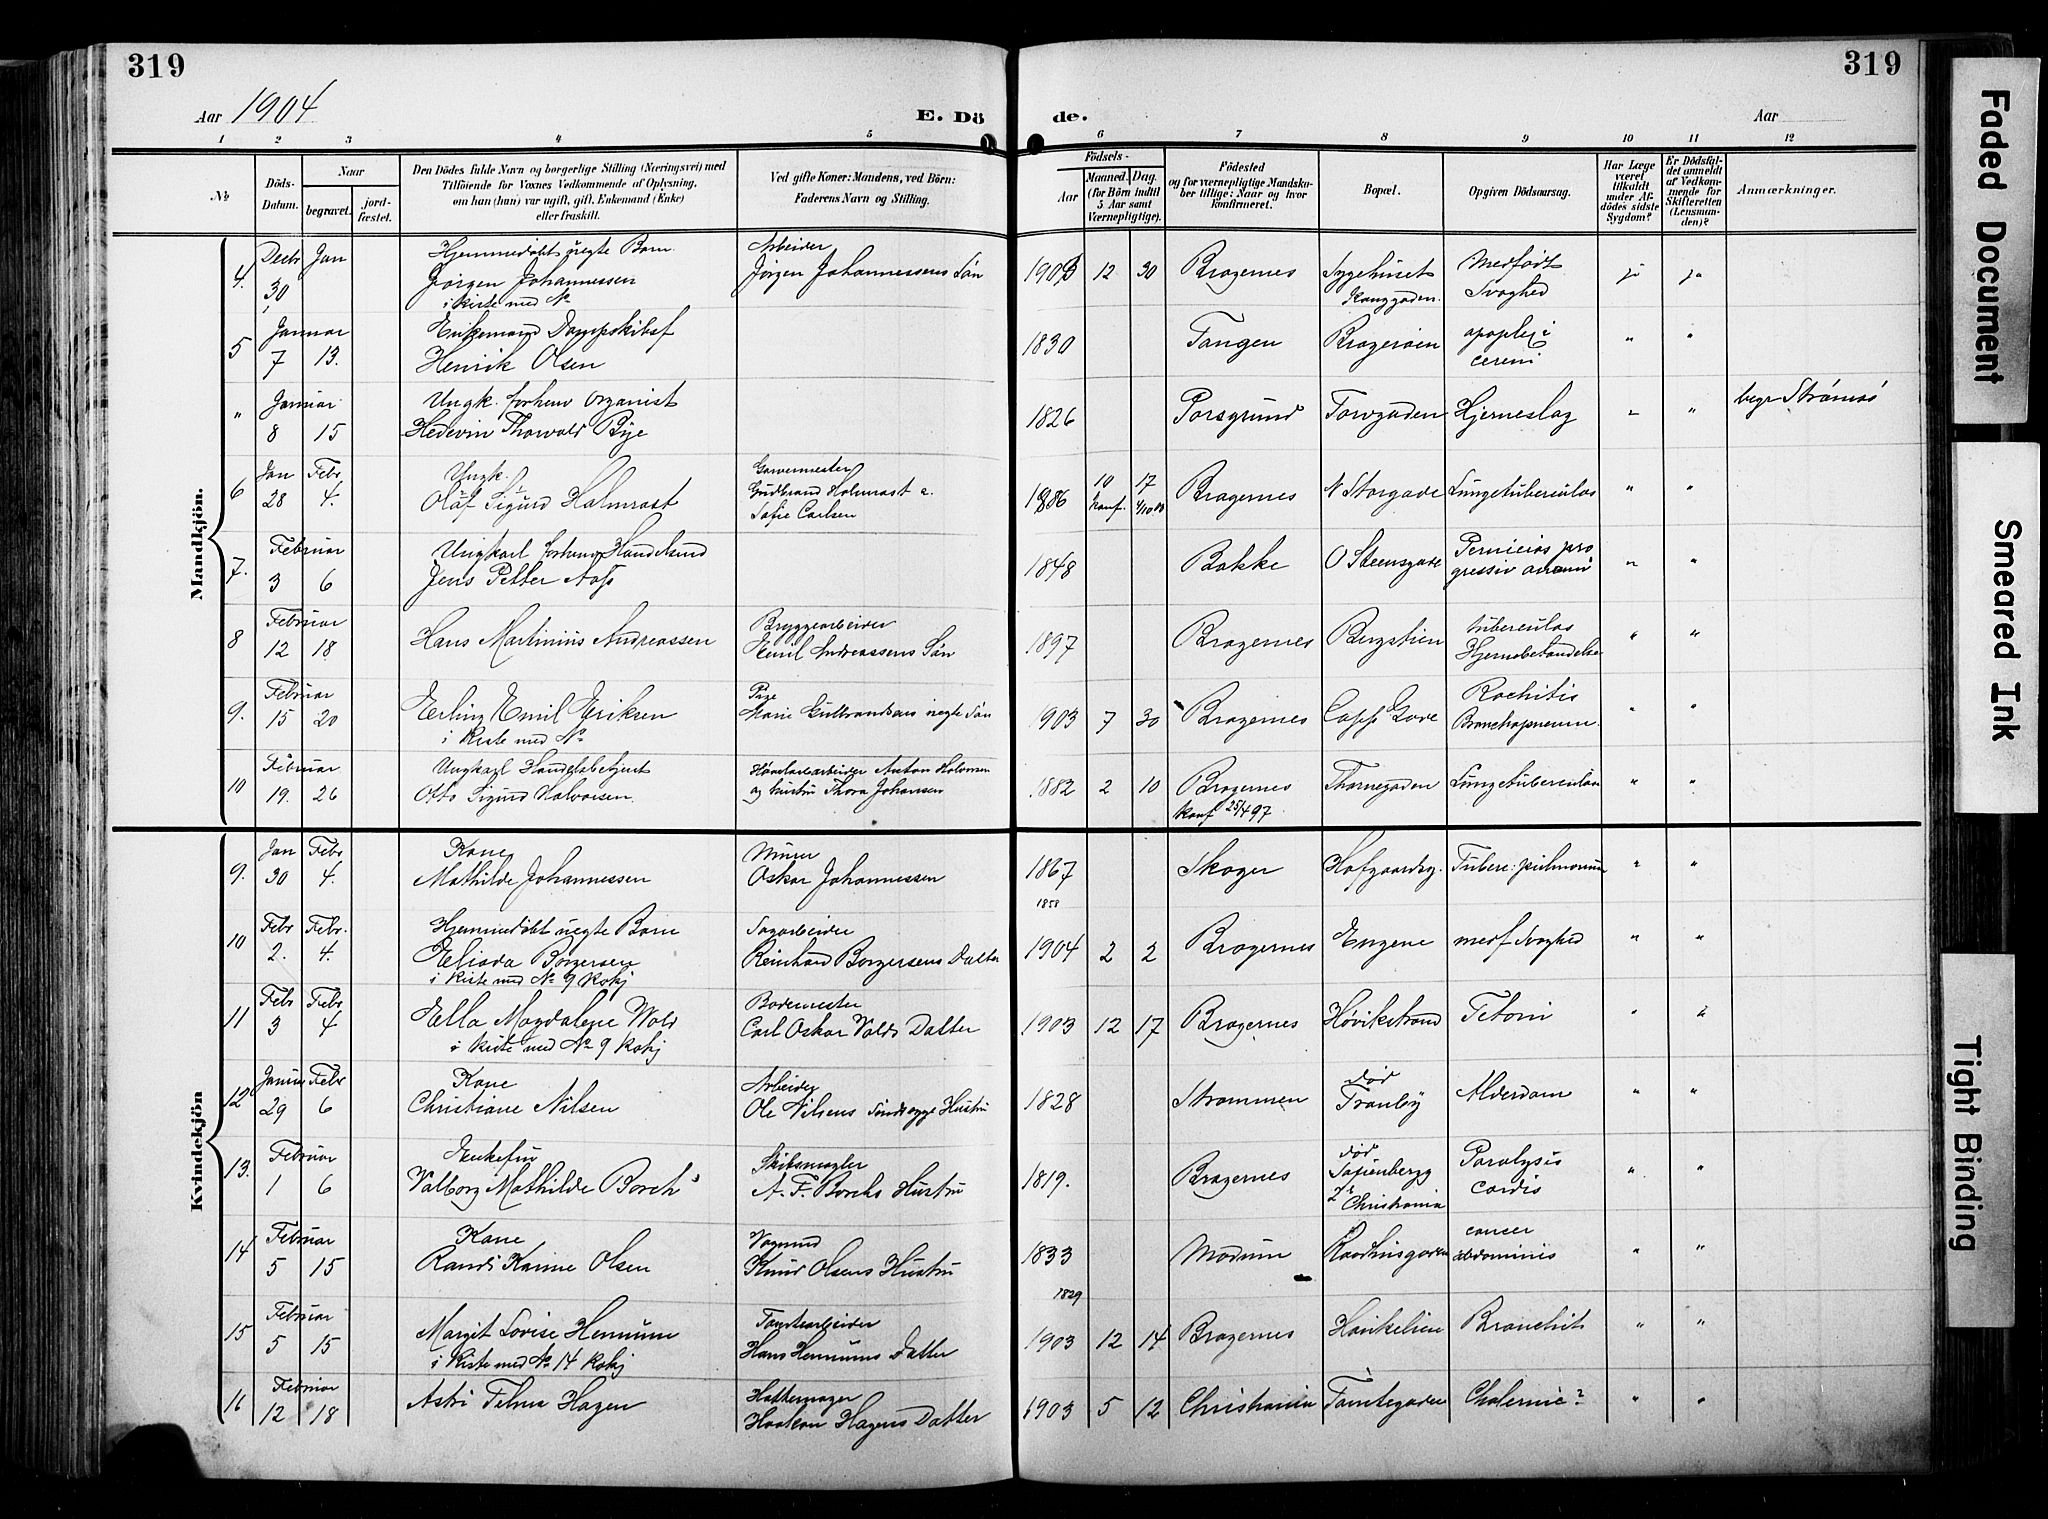 319
319
Aar 1904
E. Dö
de.
Aar
1 2 3 4 5 6 7 8 9 10 11 12
No
Döds-Datum.
Naar
begravet.
jord-fæstet.
Den Dödes fulde Navn og borgerlige Stilling (Næringsvei) med
Tilföiende for Voxnes Vedkommende af Oplysning,
om han (hun) var ugift, gift, Enkemand (Enke)
eller fraskilt.
Ved gifte Koner: Mandens, ved Börn:
Faderens Navn og Stilling.
Födsels-
Aar
Maaned. Dag.
(for Börn indtil
5 Aar samt
Værnepligtige).
Födested
og for værnepligtige Mandska-
ber tillige: Naar og hvor
konfirmeret.
Bopæl.
Opgiven Dödsaarsag.
Har Læge
været
tilkaldt
under Af-
dödes sidste
Sygdom?
Er Dödsfal-
det anmeldt
af Vedkom-
mende for
Skifteretten
(Lensman-
den)?
Anmærkninger.
Mandkjön.
4. Decbr 30 Jan
Hjemmedøbt uegte Barn
Jørgen Johannessen
i kiste med No
Arbeider
Jørgen Johannessens Søn
1903 12 30 Bragernes Sygehuset
Konggaden.
Medfødt
Svaghed
ja ja
5 Januar 7 13.
Enkemand Dampskibsf
Henrik Olsen
1830 Tangen Bragerøen apoplexi
" "
" Januar 8 15
Ungk. forhenv Organist
Hedevin Thorvald Bye
1826 Porsgrund Torvgaden Hjerneslag " " begr Strømsø
6 Jan 28 Febr 4.
Ungk.
Olaf Sigurd Holmrast
Garvermester
Gudbrand Holmrast o.
Sofie Carlsen
1886 10 17
Konf.
Bragernes N Storgade Lungetuberculos " "
7. Februar 3 6
Ungkarl forhenv Handelsmd
Jens Petter Aas
1848 Bakke O Steensgade Pernicios pro
gressiv anæmi
" "
8 Februar 12 18
Hans Martinius Andreassen
Bryggearbeider
Emil Andreassens Søn
1897 Bragernes Bergstien tuberculos
Hjernebetændelse
" "
9. Februar 15 20
Erling Emil Eriksen
i kiste med No
Pige
Marie Gulbrandsens uegte Søn
1903 7 30 Bragernes Capp Gade Rachitis
Bronchopneum.
" "
10 Februar 19. 26
Ungkarl Handelsbetjent
Otto Sigurd Halvorsen
Høvleriarbeider Anton Halvorsen
og hustru Thora Johansen
1882 2 10 Bragernes
Konf 25/4 97
Thornegaden Lungetuberculos " "
Kvindekjön
9. Jan 30 Febr 4.
Kone
Mathilde Johannessen
Murer
Oskar Johannessen
1867
1858
Skoger Hofgaardsg. Tuberc: pulmonum " "
10 Febr 2. Febr. 4.
Hjemmedøbt uegte Barn
Eliada Borgersen
i kiste med No 9 Kokj
Sagarbeider
Reinhard Borgersens Datter
1904 2 2 Bragernes Engene medf Svaghed " "
11 Febr 3 Febr 4
Ella Magdalene Wold
i kiste med No 9 Kokj
Bademester
Carl Oskar Volds Datter
1903 12 17 Bragernes Høvikstrand " "
12 Januar 29 Febr 6
Kone
Christiane Nilsen
Arbeider
Ole Nilsens Sandvegge Hustru
1828 Strømmen død
Tranby
Alderdom " "
13. Februar 1 6
Enkefru
Valborg Mathilde Borch
Skibsmægler
A. F. Borchs Hustru
1819. Bragernes død
Sofienbergg
Christiania
Paralysis
cordis
" "
14 Februar 5 15
Kone
Randi Karine Olsen
Vognmd
Knud Olsens Hustru
1833
1829
Modum Raadhusgaden cancer
abdominis
" "
15 Februar 5 15
Margit Lovise Hennum
i Kiste med No 14 Kokj
Tomtearbeider
Hans Hennums Datter
1903 12 14 Bragernes Høvikelven Bronchit " "
16 Februar 12 18
Astri Telma Hagen
Hattemager
Haakon Hagens Datter
1903 5 12 Christiania Tomtegaden Cholerine? " "
Faded Document
Smeared Ink
Tight Binding